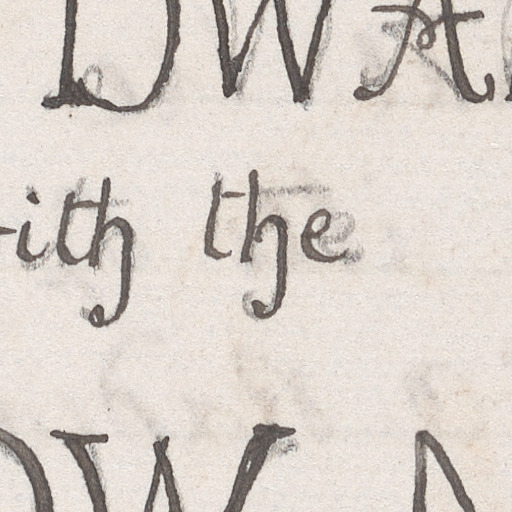 DWA
ith the
W